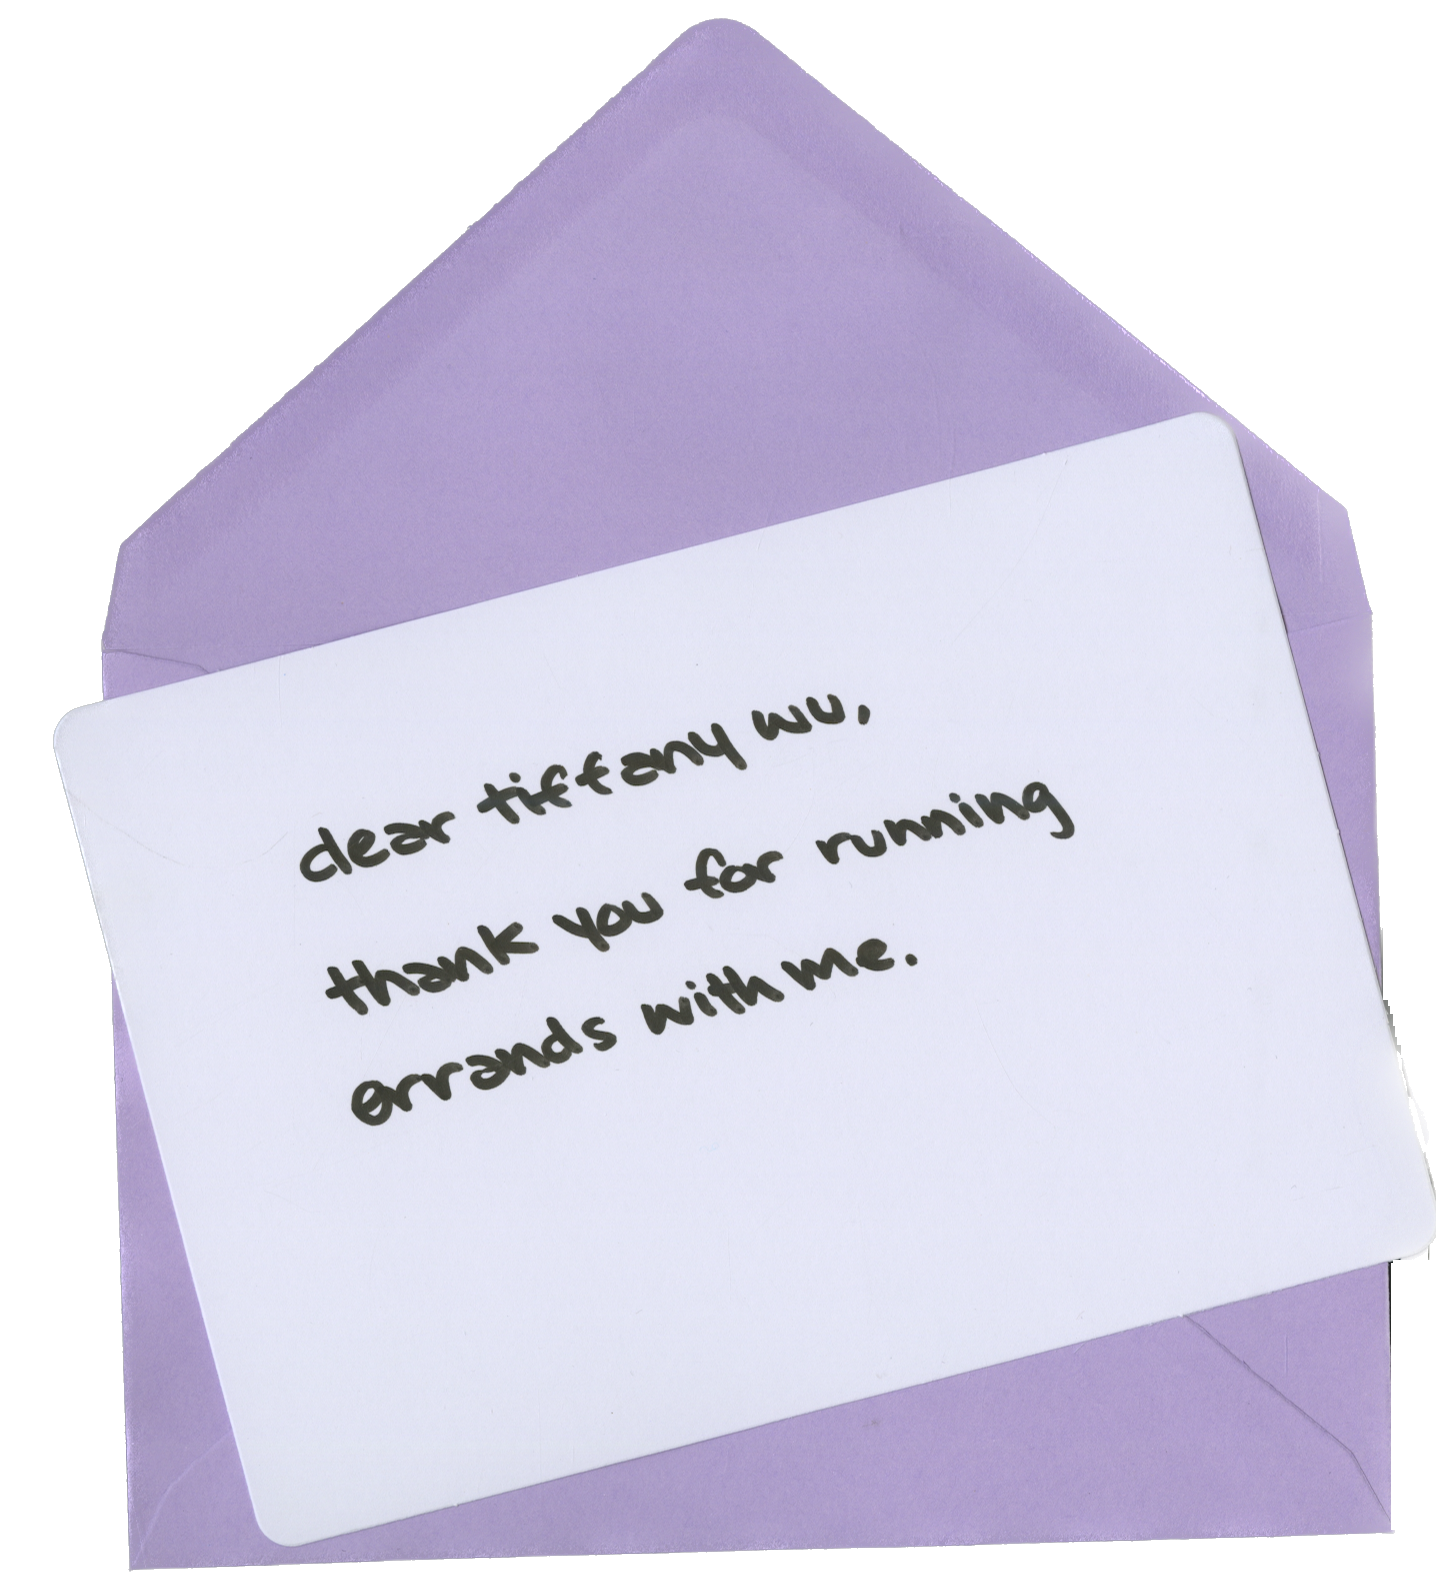 dear tiffany wu,
thank you for running
errands with me.